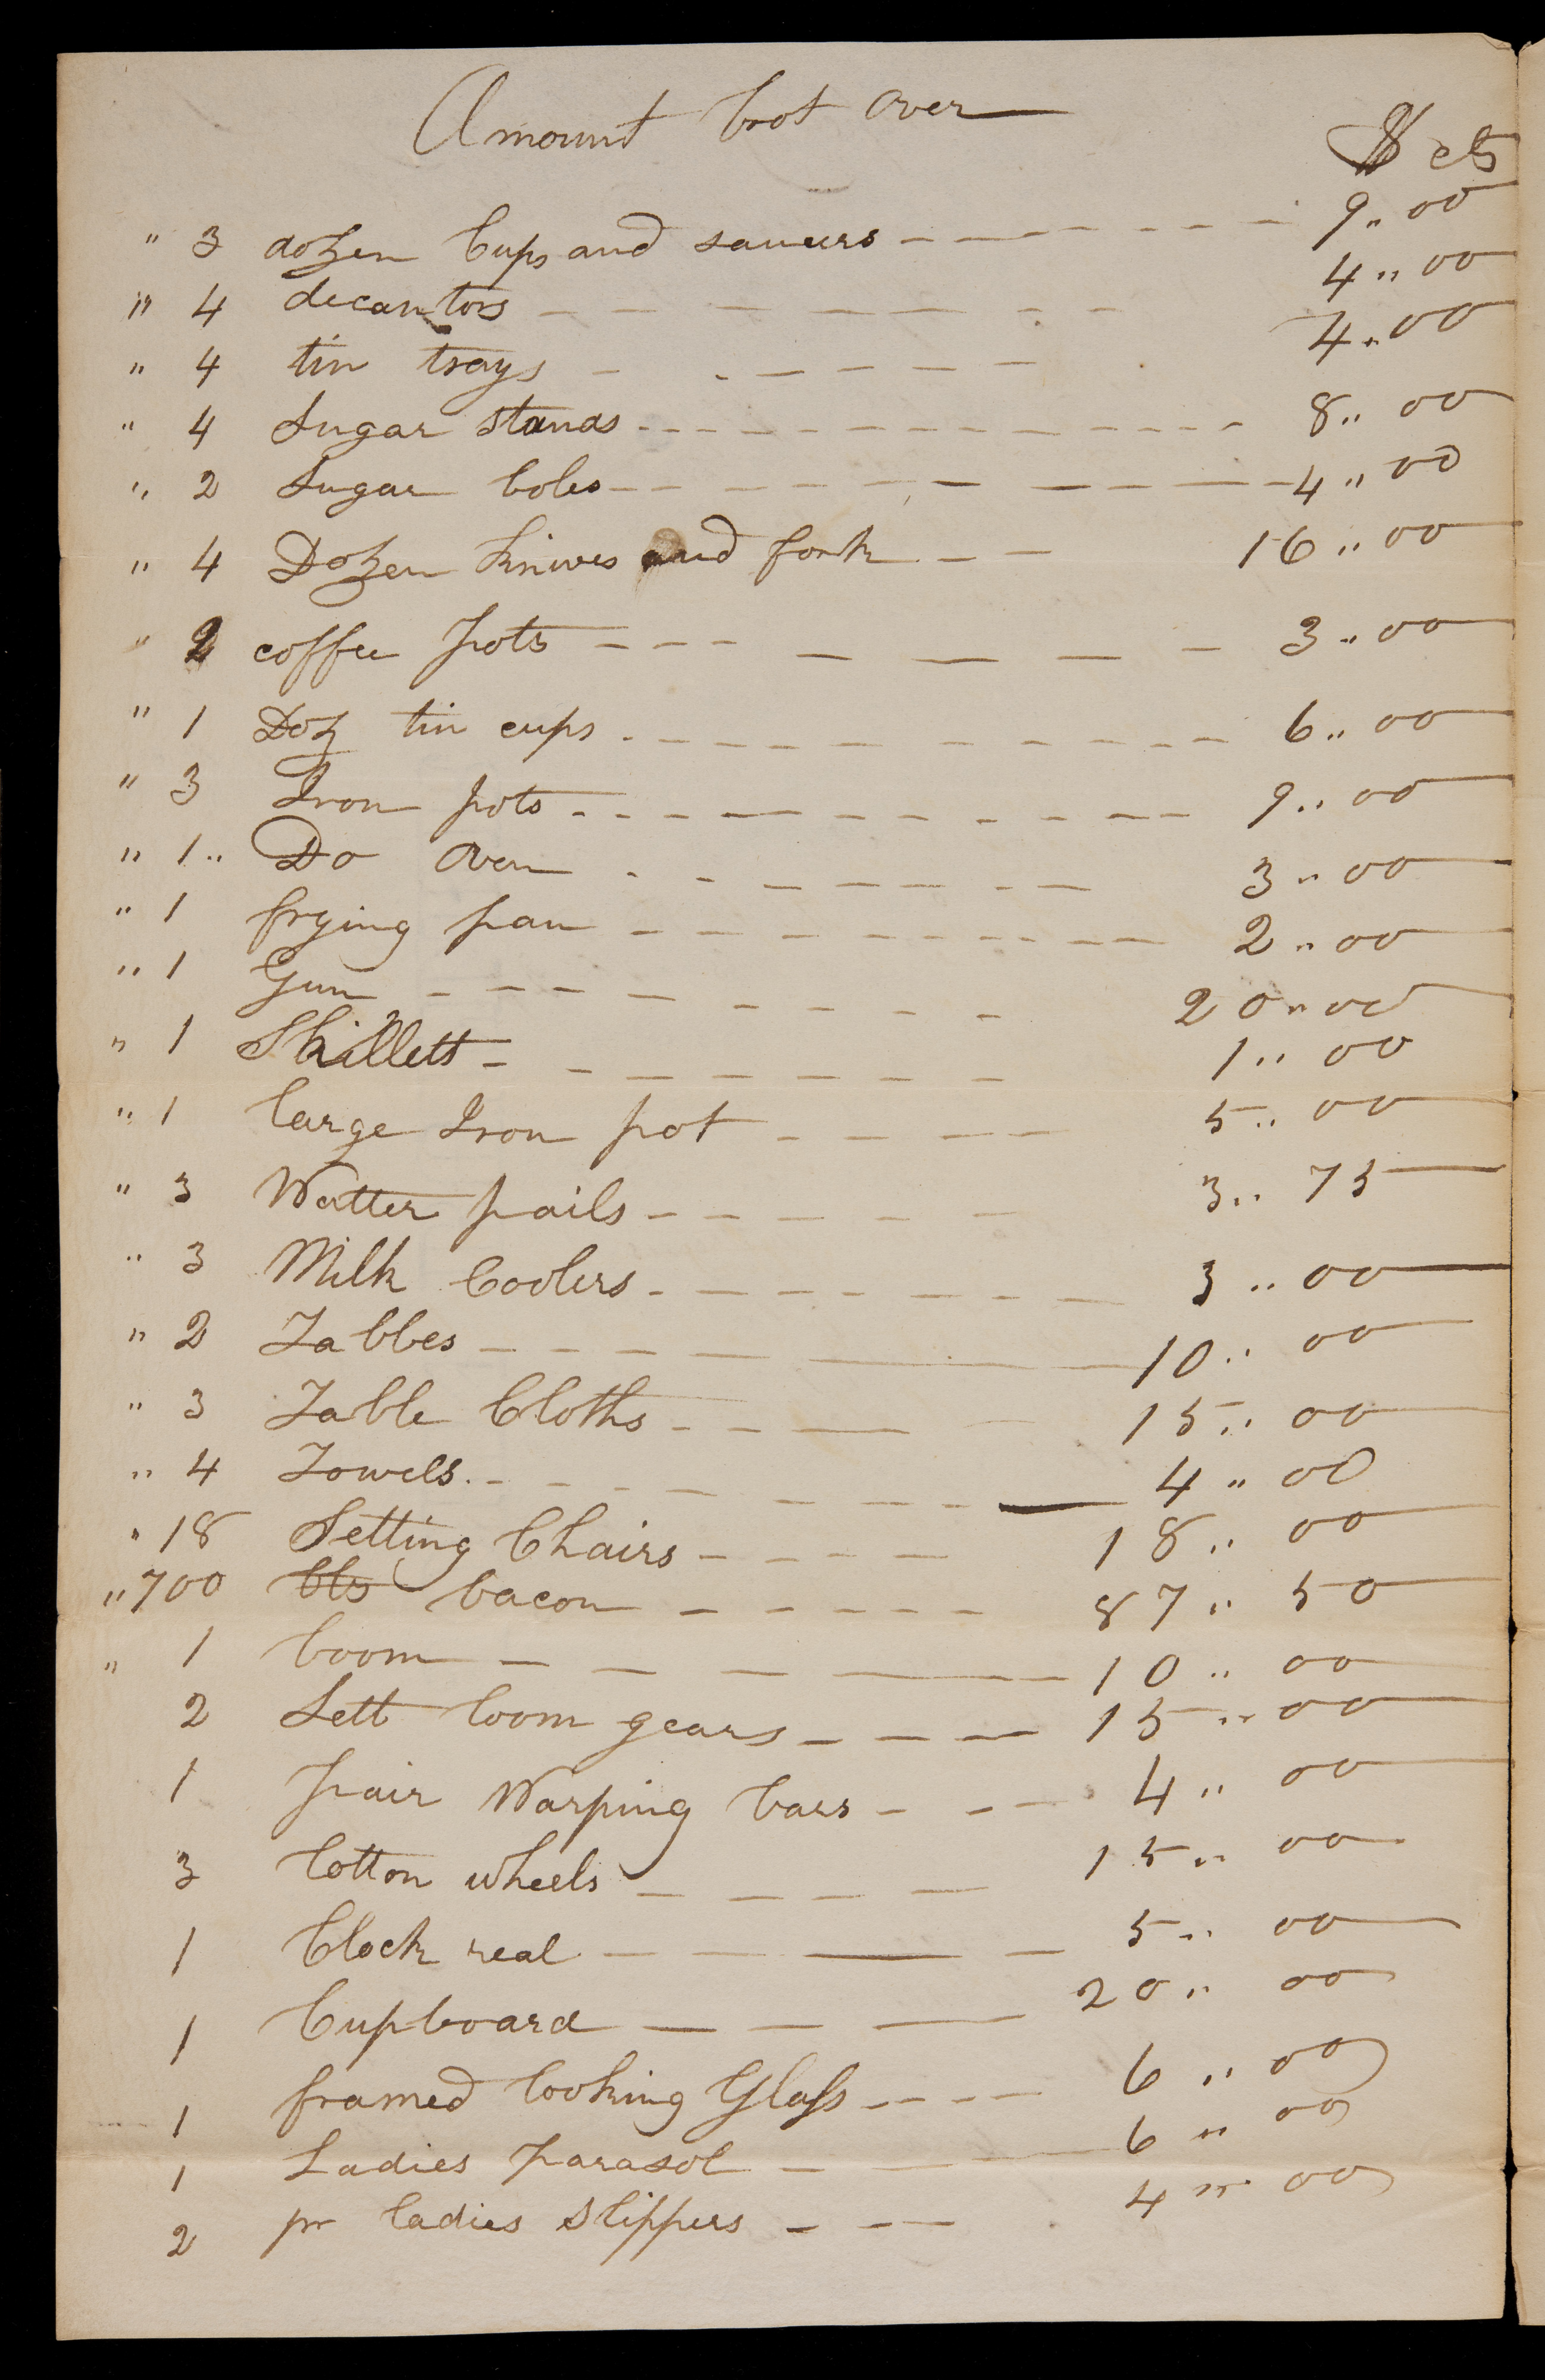 Amount brot over
$ cts
" 3 dozen Cups and saucers 9.. 00
" 4 decantors 4.. 00
" 4 tin trays 4.. 00
" 4 Sugar stands 8.. 00
" 2 Sugar boles 4.. 00
" 4 Dozen knives and fork 16.. 00
" 2 coffee pots 3.. 00
" 1 Doz tin cups 6.. 00
" 3 Iron pots 9.. 00
" 1.. Do Oven 3.. 00
" 1 frying pan 2.. 00
" 1 Gun 20.. 00
" 1 Skillett 1.. 00
" 1 large Iron pot 5.. 00
" 3 Watter pails 3.. 75
" 3 Milk Coolers 3.. 00
" 2 Tabbes 10.. 00
" 3 Table Cloths 15.. 00
" 4 Towels 4.. 00
" 18 Setting Chairs 18.. 00
" 700 lbs bacon 87.. 50
" 1 loom 10.. 00
2 Sett loom gears 15.. 00
1 pair Warping bars 4.. 00
3 Cotton wheels 15.. 00
1 Clock real 5.. 00
1 Cupboard 20.. 00
1 framed looking Glass 6.. 00
1 Ladies parasol 6.. 00
2 pr ladies slippers 4.. 00